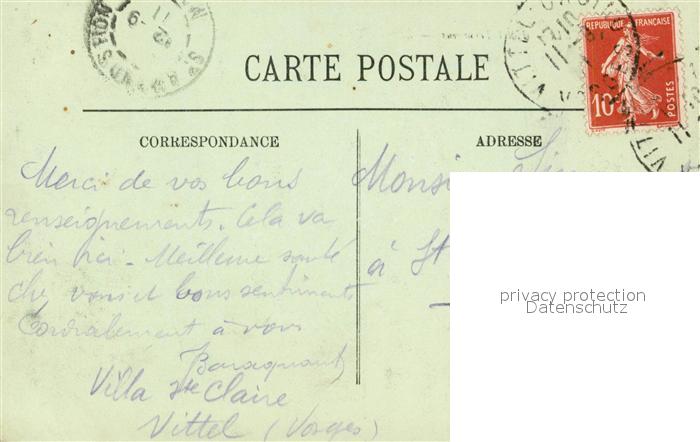 CARTE POSTALE
REPUBLIQUE FRANÇAISE
10
POSTES
CORRESPONDANCE
ADRESSE
Merci de vos bons
renseignements. Cela va
bien ici - Meilleure santé
chez vous et bons sentiments
Cordialement à vous
Villa Ste Claire
Vittel (Vosges)
Monsi
à St
privacy protection
Datenschutz